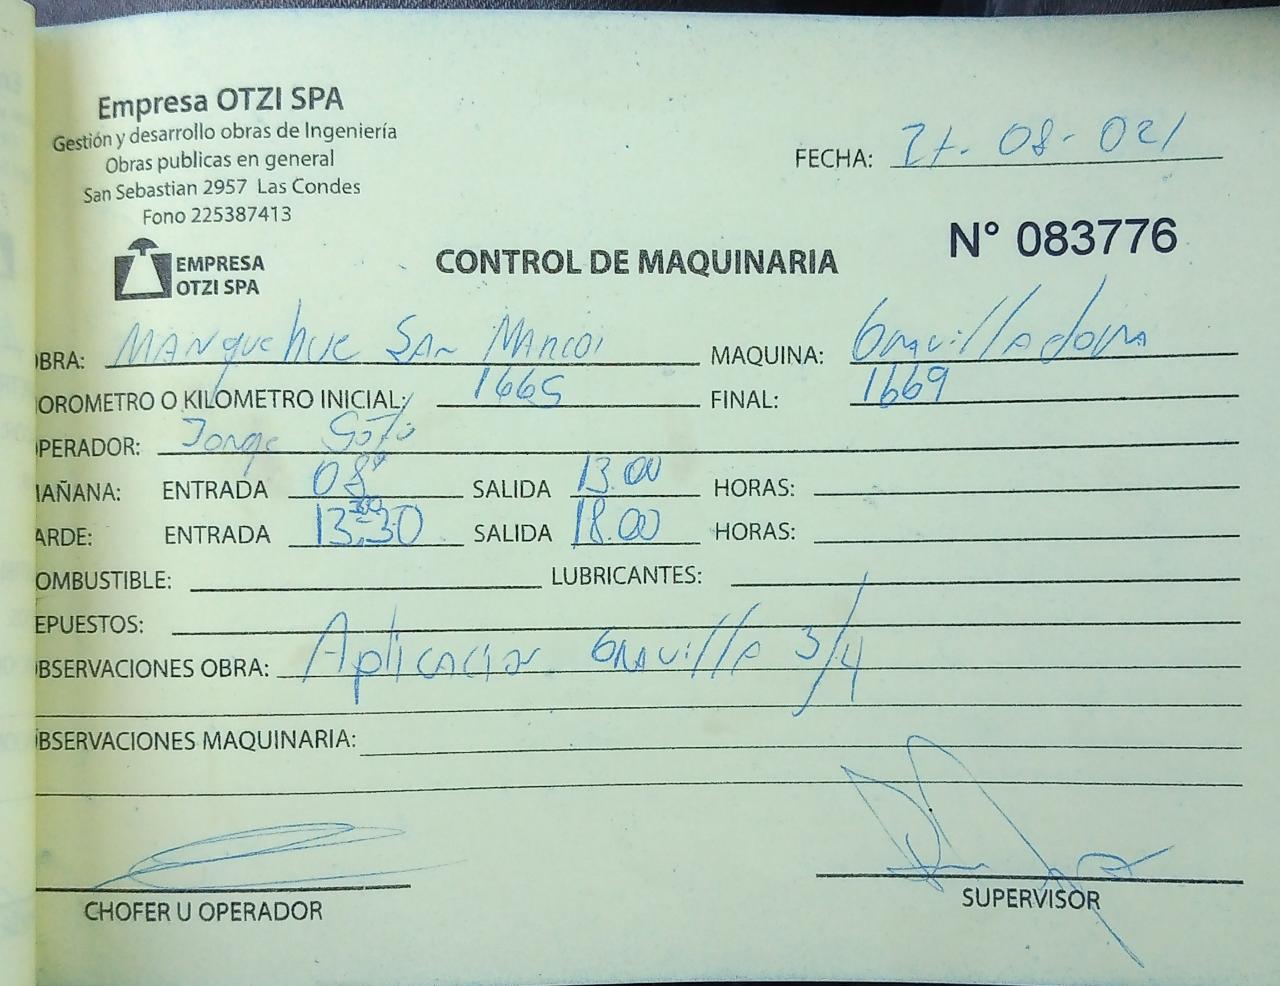 Empresa OTZI SPA
Gestión y desarrollo obras de Ingeniería
Obras publicas en general
San Sebastian 2957 Las Condes
Fono 225387413
FECHA: 27-08-021
N° 083776
EMPRESA
OTZI SPA
CONTROL DE MAQUINARIA
OBRA: MANquehue SAn MArcos MAQUINA: Gravilladora
OROMETRO O KILOMETRO INICIAL: 1665 FINAL: 1669
OPERADOR: Jorge Soto
MAÑANA: ENTRADA 08 SALIDA 13.00 HORAS:
ARDE: ENTRADA 13:30 SALIDA 18.00 HORAS:
OMBUSTIBLE: LUBRICANTES:
EPUESTOS:
OBSERVACIONES OBRA: Aplicacion Gravilla 3/4
OBSERVACIONES MAQUINARIA:
CHOFER U OPERADOR SUPERVISOR